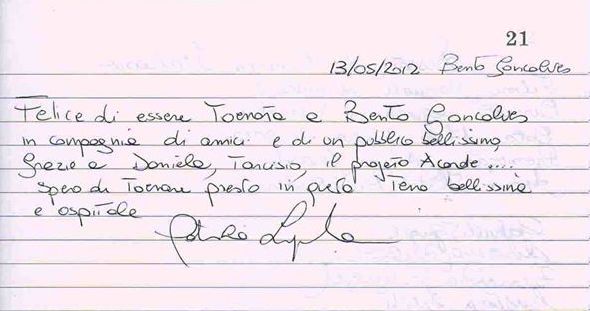 21
13/05/2012 Bento Goncalves
Felice di essere Tornata a Bento Goncalves
in compagnia di amici e di un pubblico bellissimo,
Grazie a Daniela, Tarcisio, il projeto Acorde....
spero di Tornare presto in questa Terra bellissima
e ospitale